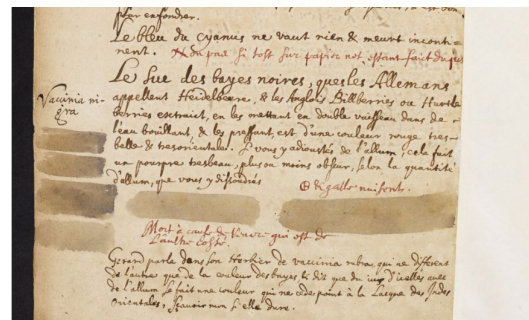 pour enfondrer.
Le bleu du cyanus ne vaut rien & meurt inconti-
nent. si tost sur papier not estant fait du jus
Vaccinia ni-
gra
Le Suc des bayes noires, que les Allemans
appellent Heidelbeere, & les Anglois Billberries ou Hurtle
berries extrait, en les mettant en double vaisseau dans de
l'eau bouillant, & les pressant, est d'une couleur rouge tres-
belle & tresorientale. Si vous y adioustés de l'allum, cela fait
un pourpre tresbeau, plus ou moins obscur, selon la quantité
d'allum, que vous y dissoudrés
& galle nuisent.
Mort à cause de qui est de
l'autre costé.
Gerard parle dans son Herbier de vaccinia rubra, qui ne different
de l'autre que de la couleur des bayes & dit que du jus d'icelles avec
de l'allum se fait une couleur qui ne cede point à la Lacque des Indes
Orientales, sçavoir mon si elle dure.